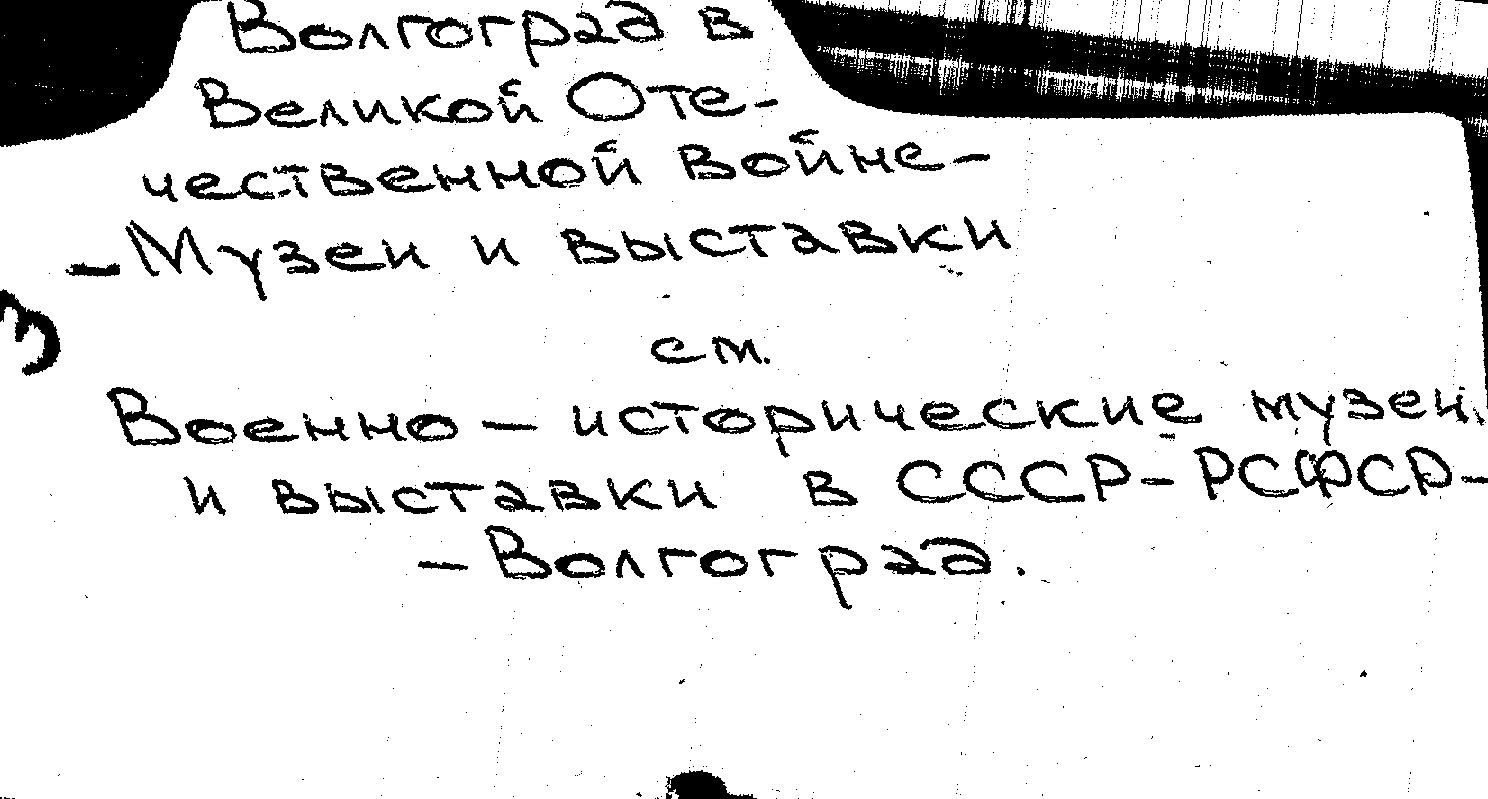 Волгоград в
Великой Оте-
чественной войне-
-Музеи и выставки
см.
Военно-исторические музеи
и выставки в СССР-РСФСР-
-Волгоград.